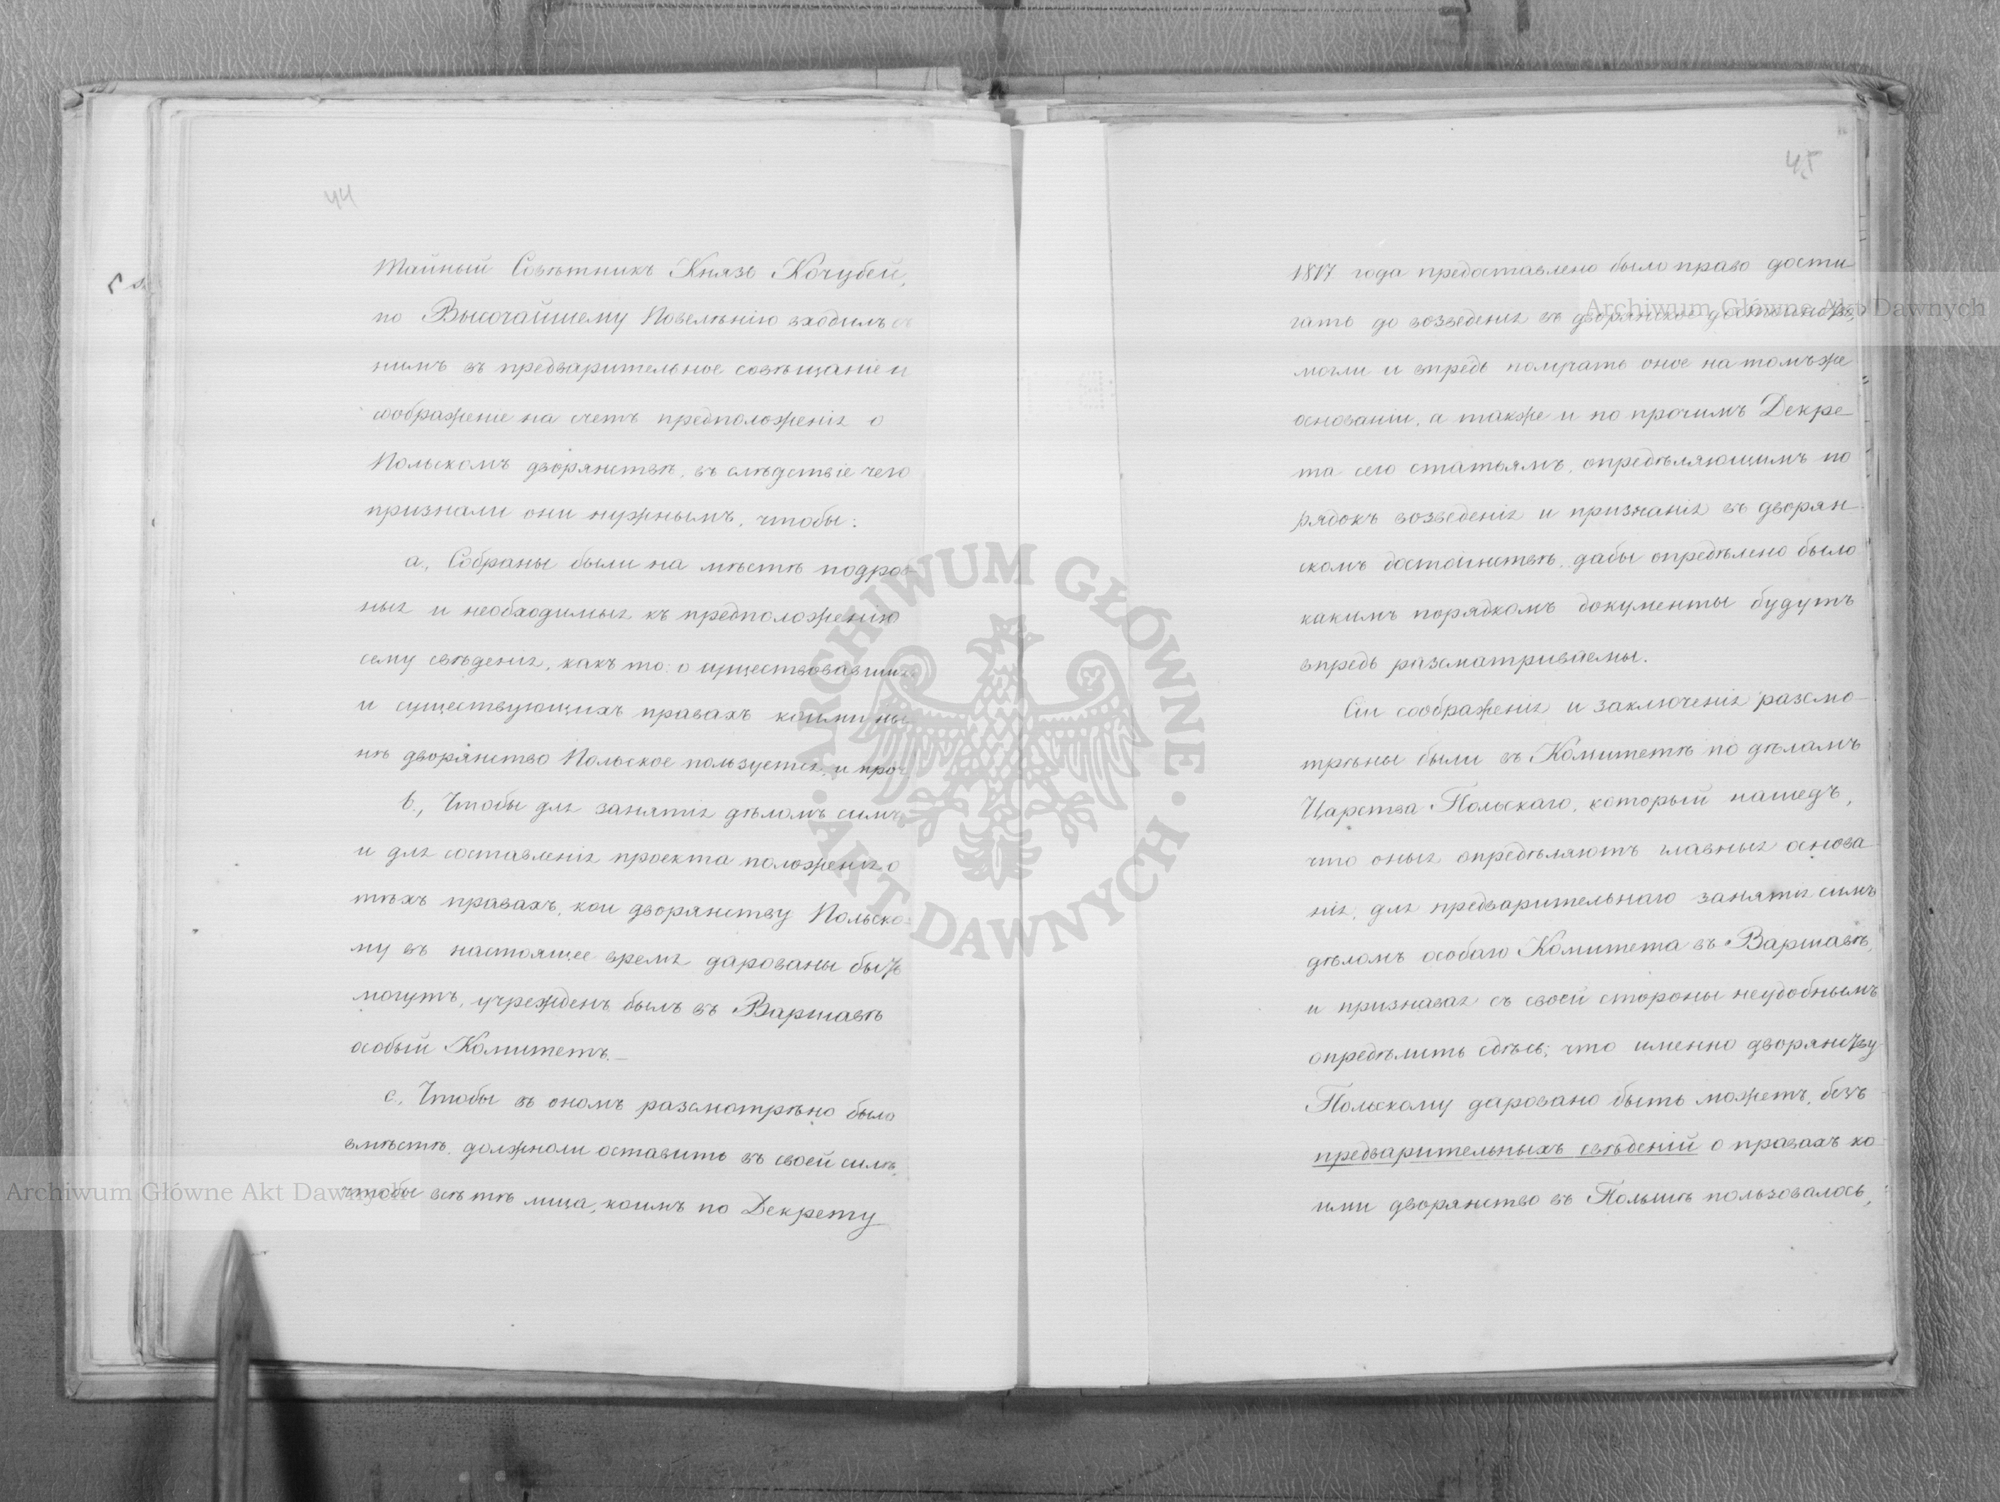 44
Тайный Совѣтникъ Князь Кочубей,
по Высочайшему Повелѣнію входилъ съ
нимъ въ предварительное совѣщаніе и
соображеніе на счетъ предположенія о
Польскомъ дворянствѣ, въ слѣдствіе чего
признали они нужнымъ, чтобы:
а, Собраны были на мѣстѣ подроб-
ныя и необходимыя къ предположенію
сему свѣденія, какъ то: о существовавшихъ
и существующихъ правахъ коими ны-
нѣ дворянство Польское пользуется, и проч.
b, Чтобы для занятія дѣломъ симъ
и для составленія проекта положенія о
тѣхъ правахъ, кои дворянству Польско-
му въ настоящее время дарованы быть
могутъ, учрежденъ былъ въ Варшавѣ
особый Комитетъ.—
с, Чтобы въ ономъ разсмотрѣно было
вмѣстѣ, должноли оставить въ своей силѣ,
чтобы всѣ тѣ лица, коимъ по Декрету
45
1817 года предоставлено было право дости
гать до возведенія въ дворянское достоинство,
могли и впредь получать оное на томъ же
основаніи, а также и по прочимъ Декре-
та сего статьямъ, опредѣляющимъ по
рядокъ возведенія и признанія въ дворян-
скомъ достоинствѣ, дабы опредѣлено было
какимъ порядкомъ документы будутъ
впредь разсматриваемы.
Сіи соображенія и заключенія разсмо-
трѣны были въ Комитетѣ по дѣламъ
Царства Польскаго, который нашедъ,
что оныя опредѣляютъ главныя основа
нія, для предварительнаго занятія симъ
дѣломъ особаго Комитета въ Варшавѣ,
и признавая съ своей стороны неудобнымъ
опредѣлить сдѣсь, что именно дворянству
Польскому даровано быть можетъ, безъ
предварительныхъ свѣдѣній о правахъ ко-
ими дворянство въ Польшѣ пользовалось,
Archiwum Główne Akt Dawnych
Archiwum Główne Akt Dawnych
ARCHIWUM GŁÓWNE
AKT DAWNYCH